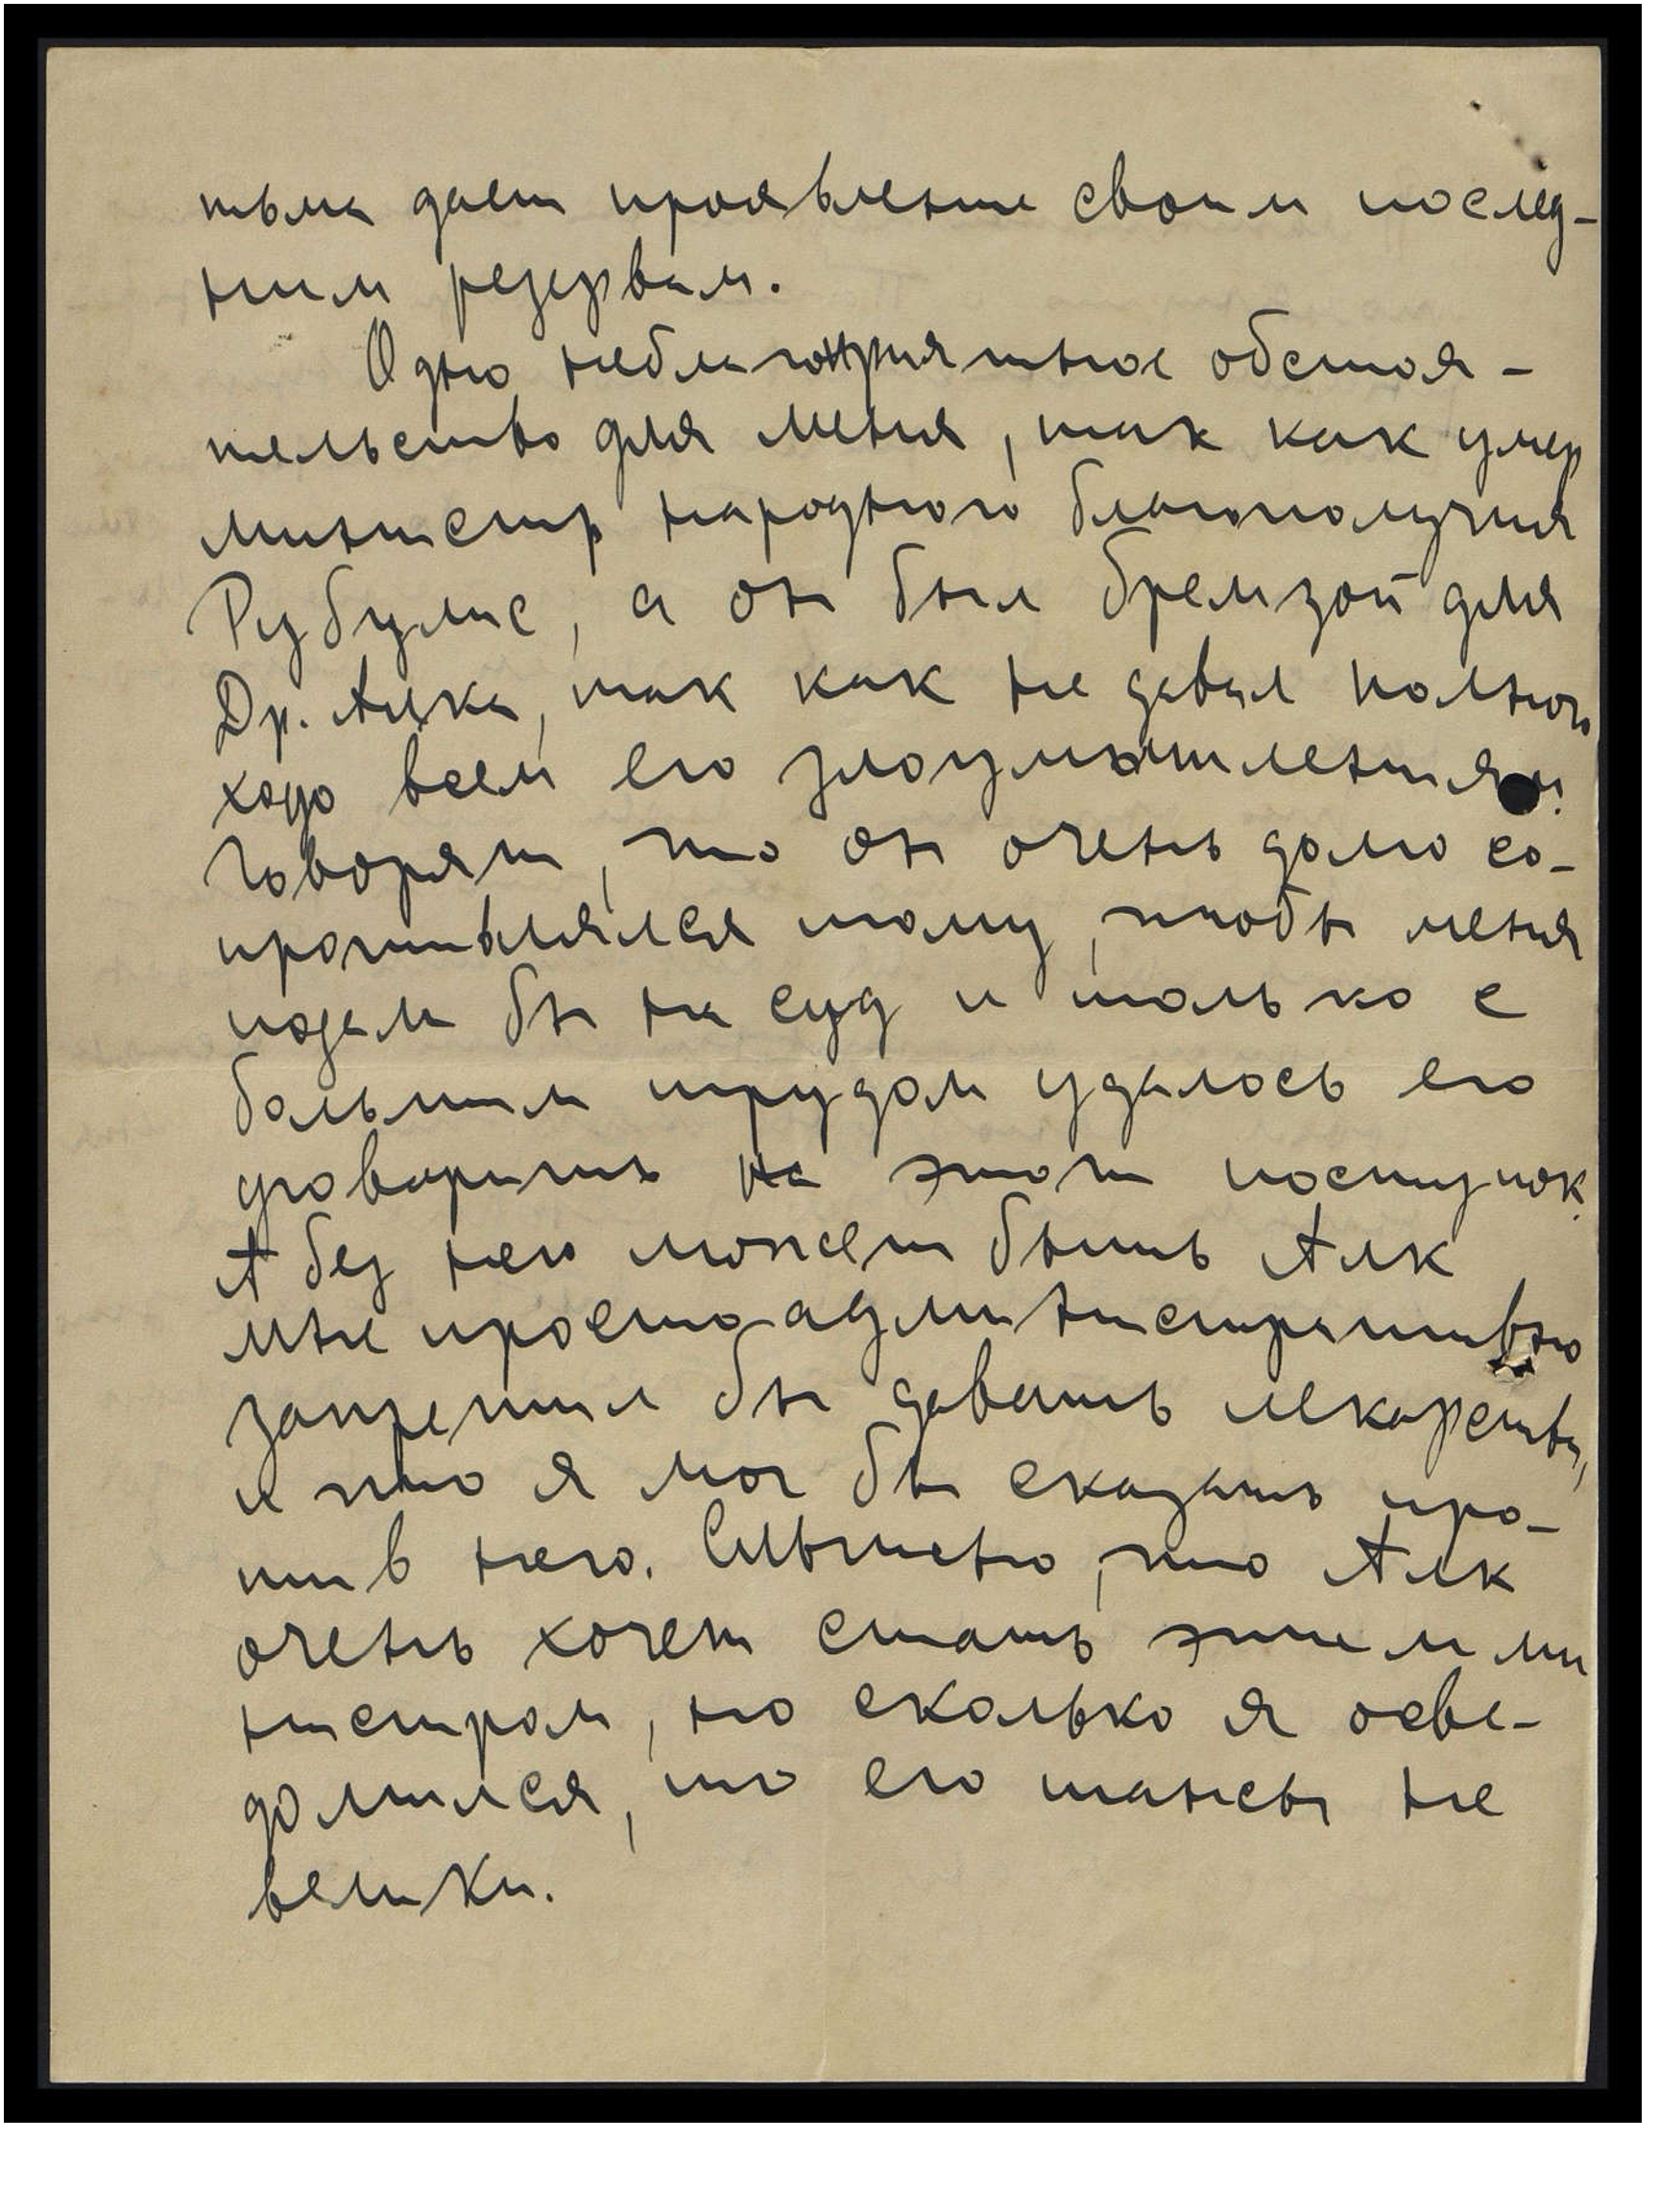 тьма дает проявление своим послед-
ним резервам.
Одно неблагоприятное обстоя-
тельство для меня, так как умер
министр народного благополучия
Рубулис, а он был бремзой для
Др. Алка, так как не давал полного
хода всем его злоумышлениям.
Говорят, что он очень долго со-
противлялся тому, чтобы меня
подали бы на суд и только с
большим трудом удалось его
уговорить на этот поступок.
А без него может быть Алк
мне просто административно
запретил бы давать лекарства,
и что я мог бы сказать про-
тив него. Слышно, что Алк
очень хочет стать этим ми
нистром, но сколько я осве-
домился, то его шансы не
велики.